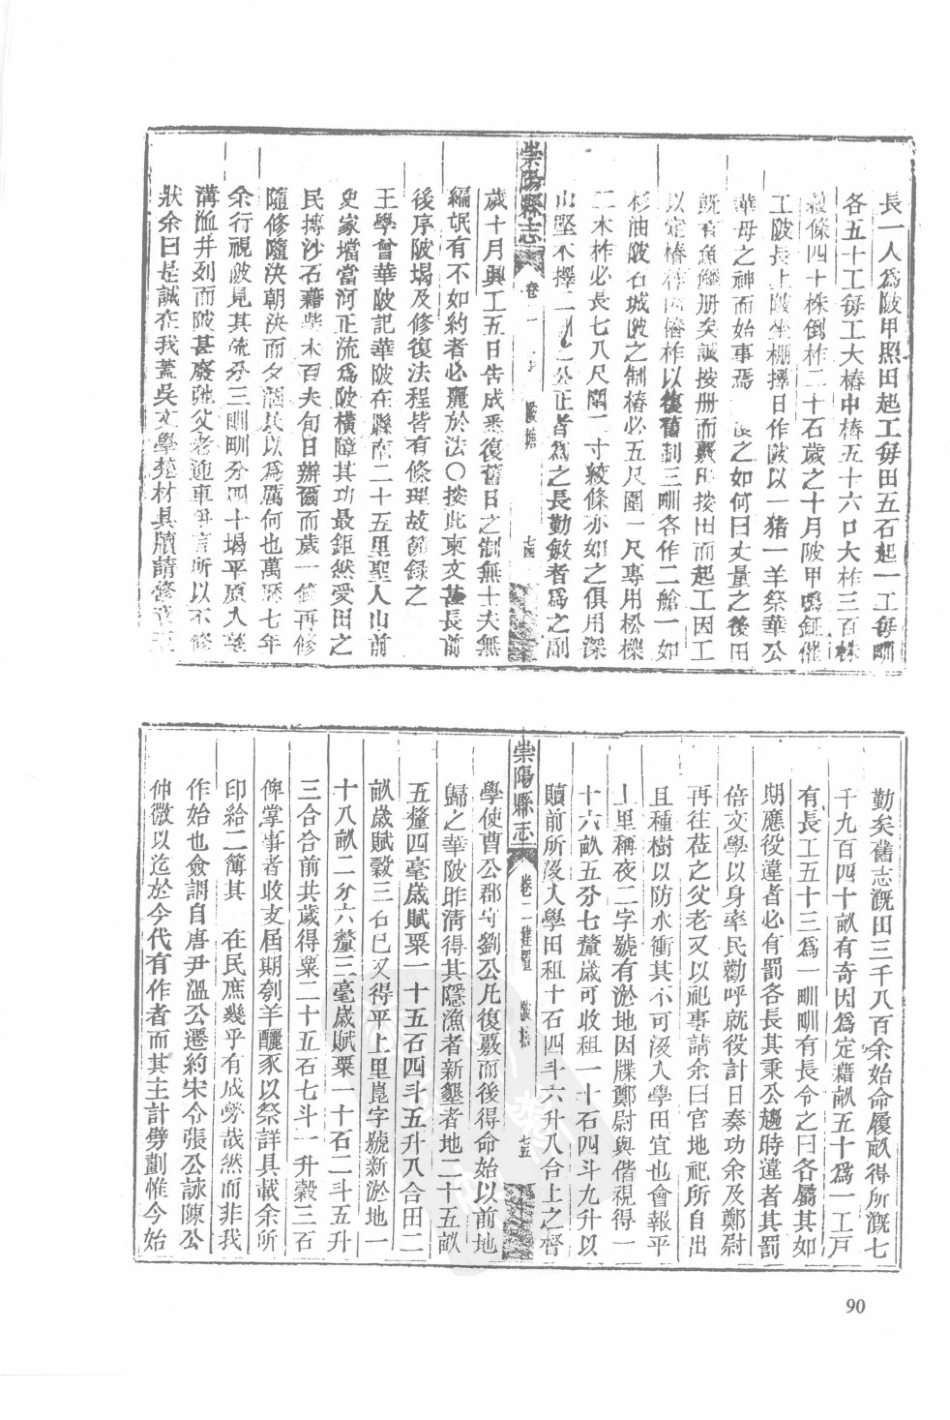 長一人為陂甲照田起工每田五石起一工每甽
各五十工每工大樁中樁五十六口大柞三百株
絞條四十株倒柞二十石歲之十月陂甲鳴鉦催
工陂長上陂坐棚擇日作陂以一猪一羊祭華公
華母之神而始事焉 之如何曰丈量之後田
既有魚鱗册矣誠按册而覈田按田而起工因工
以定樁柞因樁柞以復舊制三甽各作二艙一如
杉油陂石城陂之制樁必五尺圍一尺專用松櫟
二木柞必長七八尺闊二寸絞條亦如之俱用深
山堅木擇二 公正者為之長勤敏者為之副
崇陽縣志 卷 陂塘 七四
歲十月興工五日告成悉復舊日之制無士夫無
編氓有不如約者必麗於法〇按此東文甚長前
後序陂堨及修復法程皆有條理故節録之
王學曾華陂記華陂在縣南二十五里聖人山前
史家壋當河正流為陂橫障其功最鉅然愛田之
民摶沙石藉柴木百夫旬日辦爾而歲一修再修
隨修隨決朝決而夕涸民以為厲何也萬曆七年
余行視陂見其流分三甽甽分四十堨平原入
溝洫井列而陂甚廢弛父老迎車 言所以不修
狀余曰是誠在我蓋吳文學 材具牘請修
勤矣舊志溉田三千八百余始命履畝得所溉七
千九百四十畝有奇因為定藉畝五十為一工戸
有長工五十三為一甽甽有長令之曰各屬其如
期應役違者必有罰各長其秉公趨時違者其罰
倍文學以身率民勸呼就役計日奏功余及鄭尉
再往莅之父老又以祀事請余曰官地祀所自出
且種樹以防水衝其不可沒入學田宜也會報平
上里稱夜二字號有淤地因牒鄭尉與偕視得一
十六畝五分七釐歲可收租一十石四斗九升以
贖前所沒入學田租十石四斗六升八合上之督
崇陽縣志 卷二 建置 陂塘 七五
學使曹公郡守劉公凡復覈而後得命始以前地
歸之華陂昨淸得其隱漁者新墾者地二十五畝
五釐四毫歲賦粟一十五石四斗五升八合田二
畝歲賦穀三石已又得平上里崑字號新淤地一
十八畝二分六釐三毫歲賦粟一十石二斗五升
三合合前共歲得粟二十五石七斗一升穀三石
俾掌事者收支屆期刳羊釃豕以祭詳具載余所
印給二簿其 在民庶幾乎有成勞哉然而非我
作始也僉謂自唐尹溫公遷約宋令張公詠陳公
仲微以迄於今代有作者而其主計劈劃惟今始
90